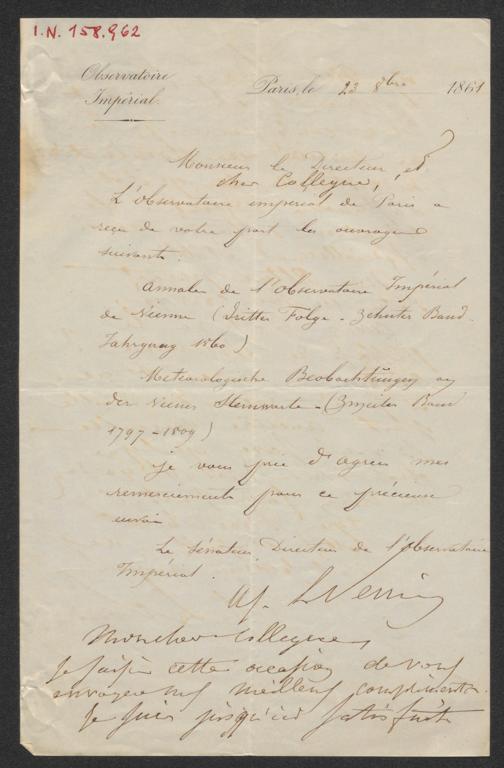 I.N. 158.962
Observatoire
Impérial.
Paris, le 23 8bre 1861
Monsieur le Directeur, et
cher Collègue,
L'Observatoire impérial de Paris a
reçu de votre part les ouvrages
suivants :
Annalen de l'Observatoire Impérial
de Vienne (Dritter Folge - Zehnter Band.
Jahrgang 1860)
Meteorologische Beobachtungen an
der Wiener Sternwarte - (Zweiter Band
1797-1809)
Je vous prie d'agréer mes
remerciements pour ce précieux
envoi
Le Sénateur, Directeur de l'Observatoire
Impérial.
Le Verrier
Mon cher Collègue
Je saisis cette occasion de vous
envoyer mes meilleurs compliments.
Je suis jusqu'ici